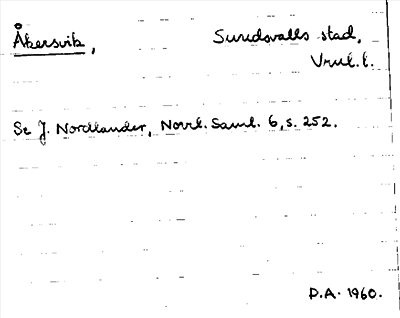 Åkersvik, Sundsvalls stad,
Vrul.t.
Se J. Nordlander, Norrl. Saml. 6, s. 252.
D.A. 1960.